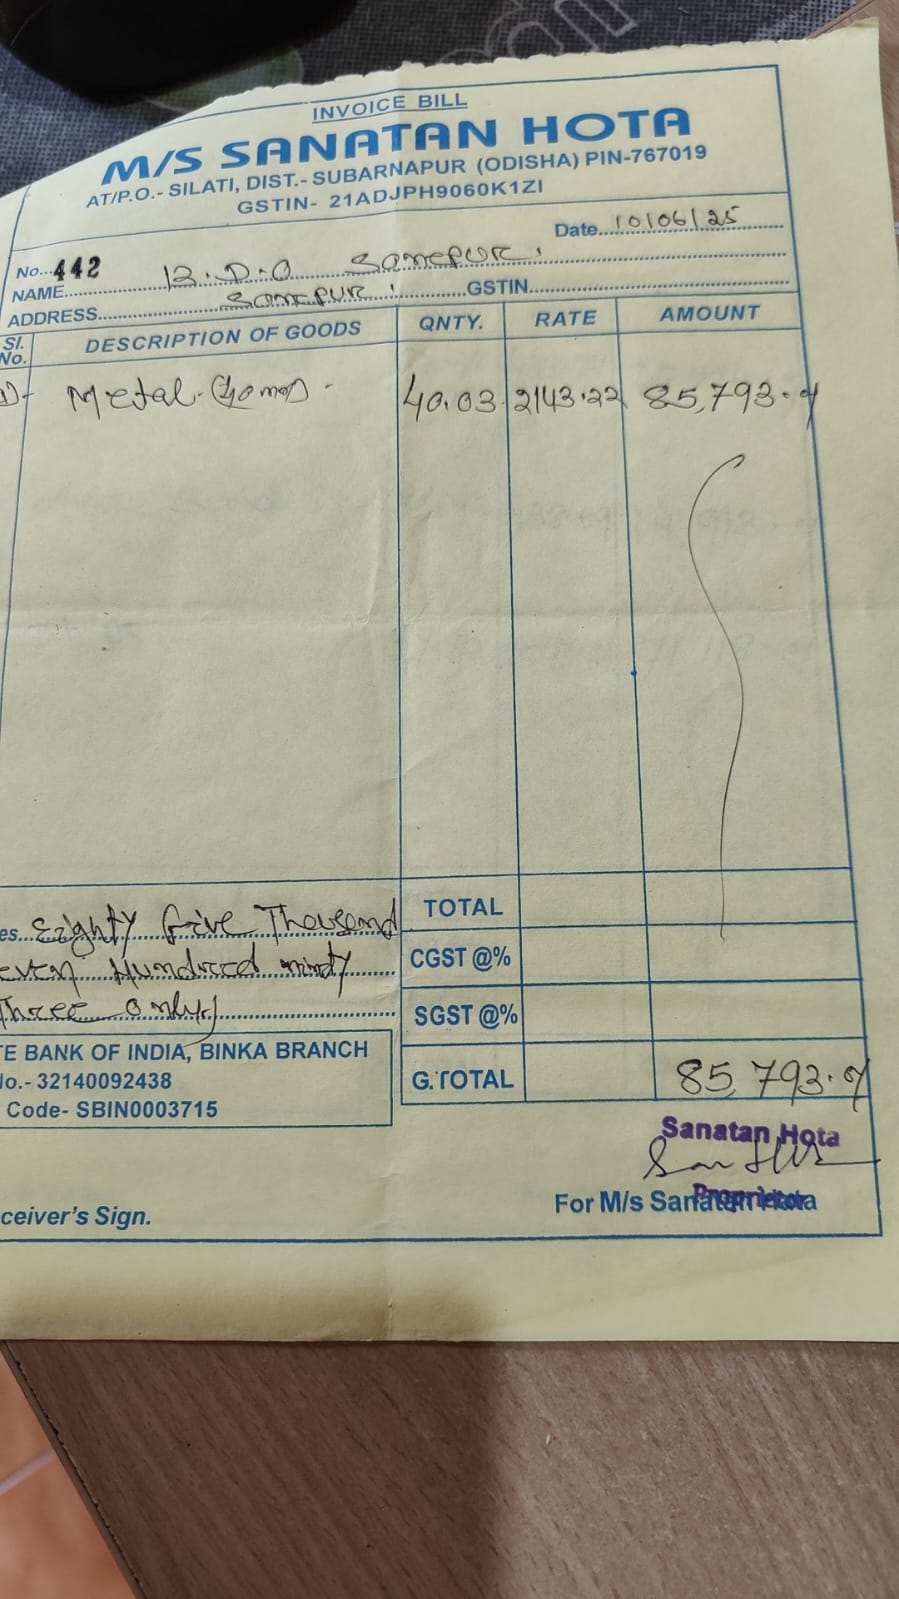 INVOICE BILL
M/S SANATAN HOTA
AT/P.O.- SILATI, DIST.- SUBARNAPUR (ODISHA) PIN-767019
GSTIN- 21ADJPH9060K1ZI
No...442 Date...10/06/25
NAME... B.D.O Sonepur.
ADDRESS... Sonepur. GSTIN...
Sl. No. DESCRIPTION OF GOODS QNTY. RATE AMOUNT
1) Metal (40 mm) 40.03 2143.22 85,793.
TOTAL
es... Eighty Five Thousand
even Hundred ninty
Three only,
CGST @%
SGST @%
G.TOTAL 85,793.
TE BANK OF INDIA, BINKA BRANCH
No.- 32140092438
Code- SBIN0003715
Sanatan Hota
Proprietor
ceiver's Sign.
For M/s Sanatan Hota